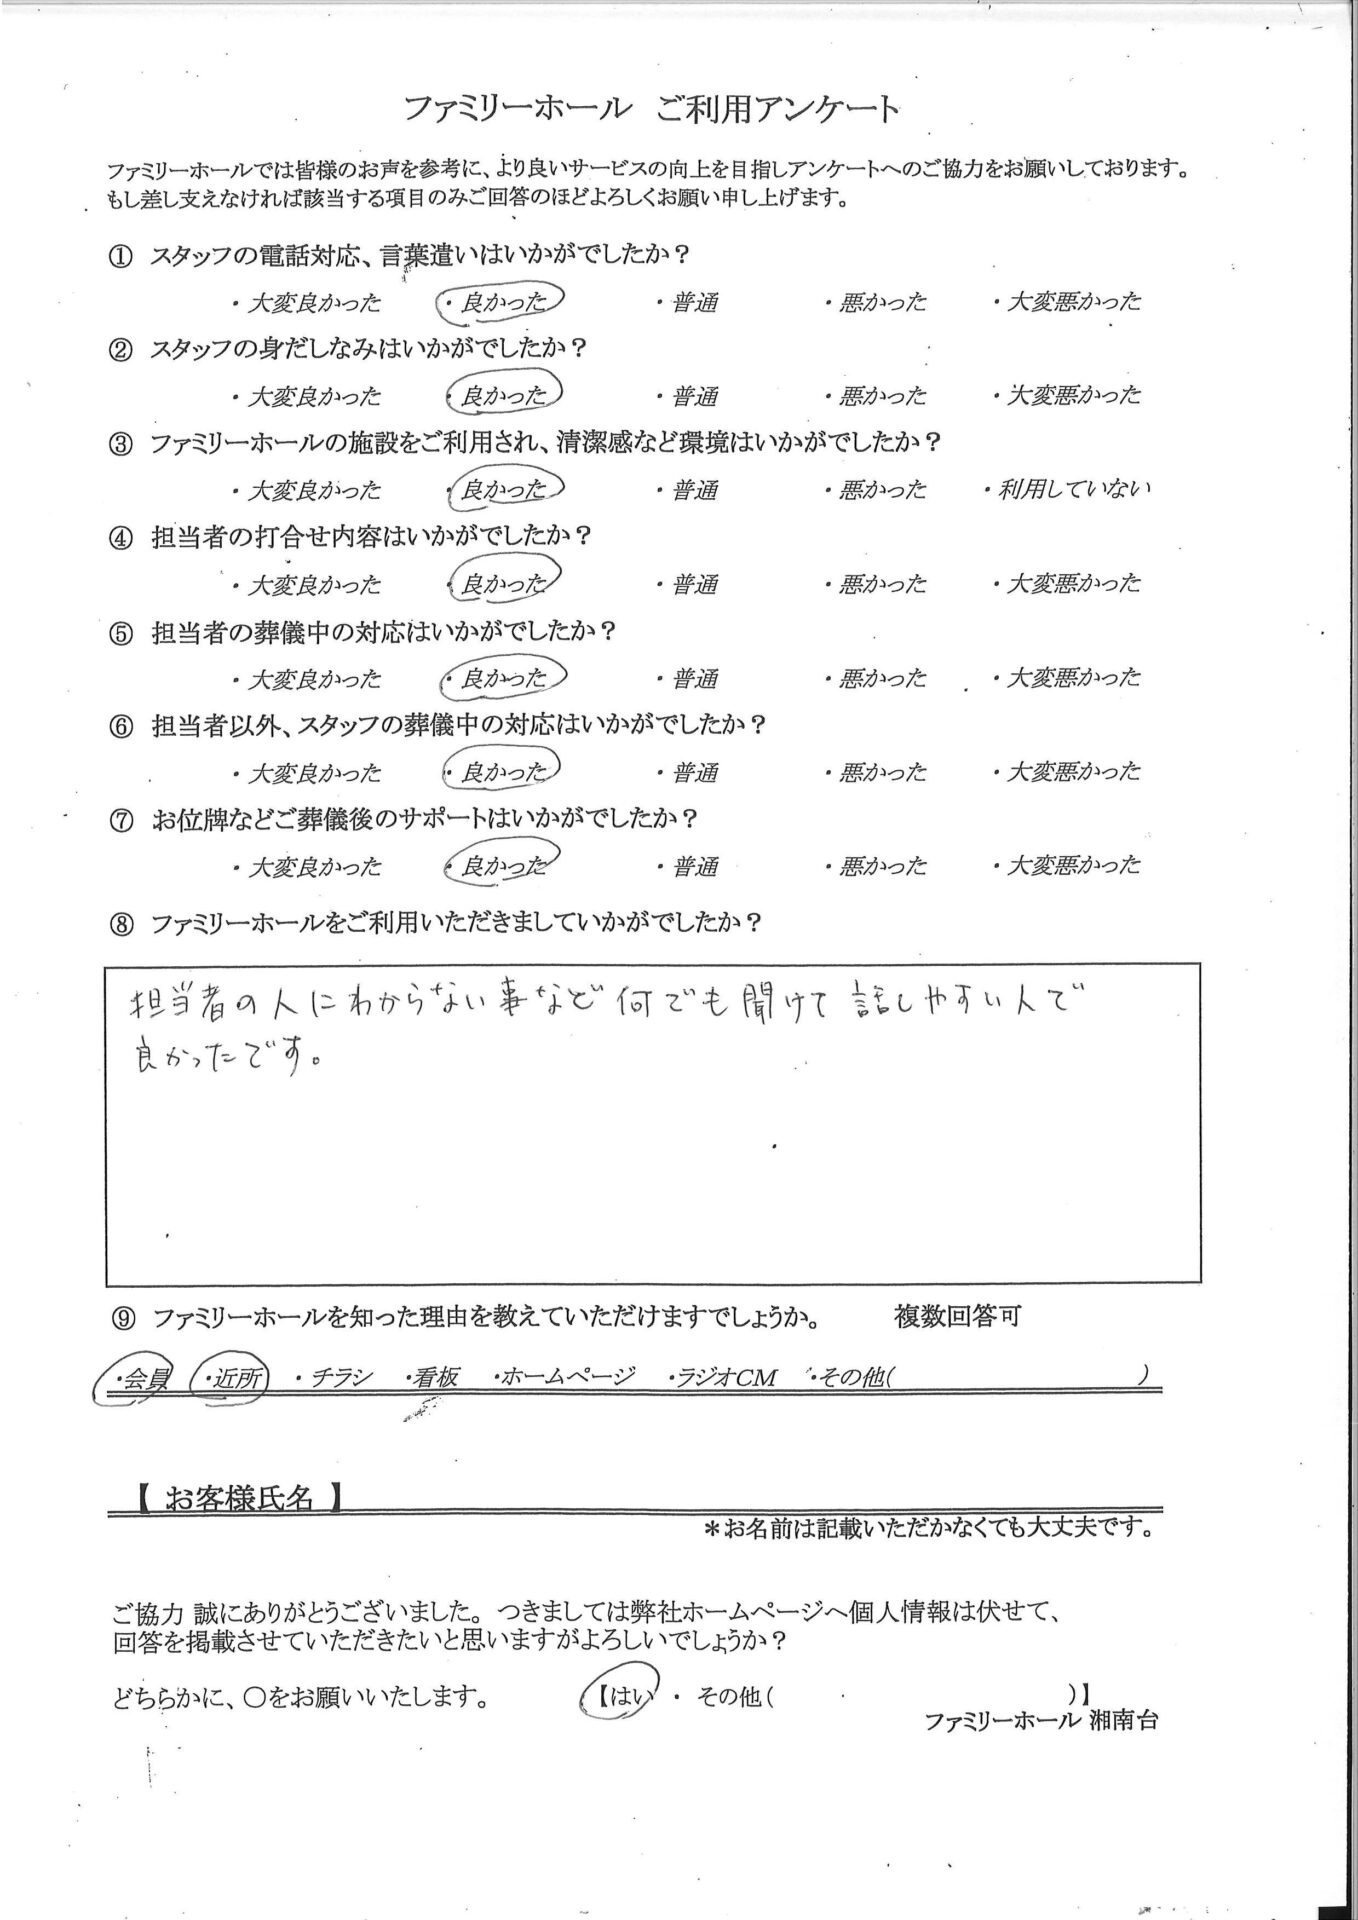 ファミリーホール ご利用アンケート
ファミリーホールでは皆様のお声を参考に、より良いサービスの向上を目指しアンケートへのご協力をお願いしております。
もし差し支えなければ該当する項目のみご回答のほどよろしくお願い申し上げます。
① スタッフの電話対応、言葉遣いはいかがでしたか？
・大変良かった ・良かった ・普通 ・悪かった ・大変悪かった
② スタッフの身だしなみはいかがでしたか？
・大変良かった ・良かった ・普通 ・悪かった ・大変悪かった
③ ファミリーホールの施設をご利用され、清潔感など環境はいかがでしたか？
・大変良かった ・良かった ・普通 ・悪かった ・利用していない
④ 担当者の打合せ内容はいかがでしたか？
・大変良かった ・良かった ・普通 ・悪かった ・大変悪かった
⑤ 担当者の葬儀中の対応はいかがでしたか？
・大変良かった ・良かった ・普通 ・悪かった ・大変悪かった
⑥ 担当者以外、スタッフの葬儀中の対応はいかがでしたか？
・大変良かった ・良かった ・普通 ・悪かった ・大変悪かった
⑦ お位牌などご葬儀後のサポートはいかがでしたか？
・大変良かった ・良かった ・普通 ・悪かった ・大変悪かった
⑧ ファミリーホールをご利用いただきましていかがでしたか？
担当者の人にわからない事など何でも聞けて話しやすい人で
良かったです。
⑨ ファミリーホールを知った理由を教えていただけますでしょうか。 複数回答可
・会員 ・近所 ・チラシ ・看板 ・ホームページ ・ラジオCM ・その他( )
【 お客様氏名 】
＊お名前は記載いただかなくても大丈夫です。
ご協力 誠にありがとうございました。つきましては弊社ホームページへ個人情報は伏せて、
回答を掲載させていただきたいと思いますがよろしいでしょうか？
どちらかに、〇をお願いいたします。 【はい ・ その他( )】
ファミリーホール 湘南台